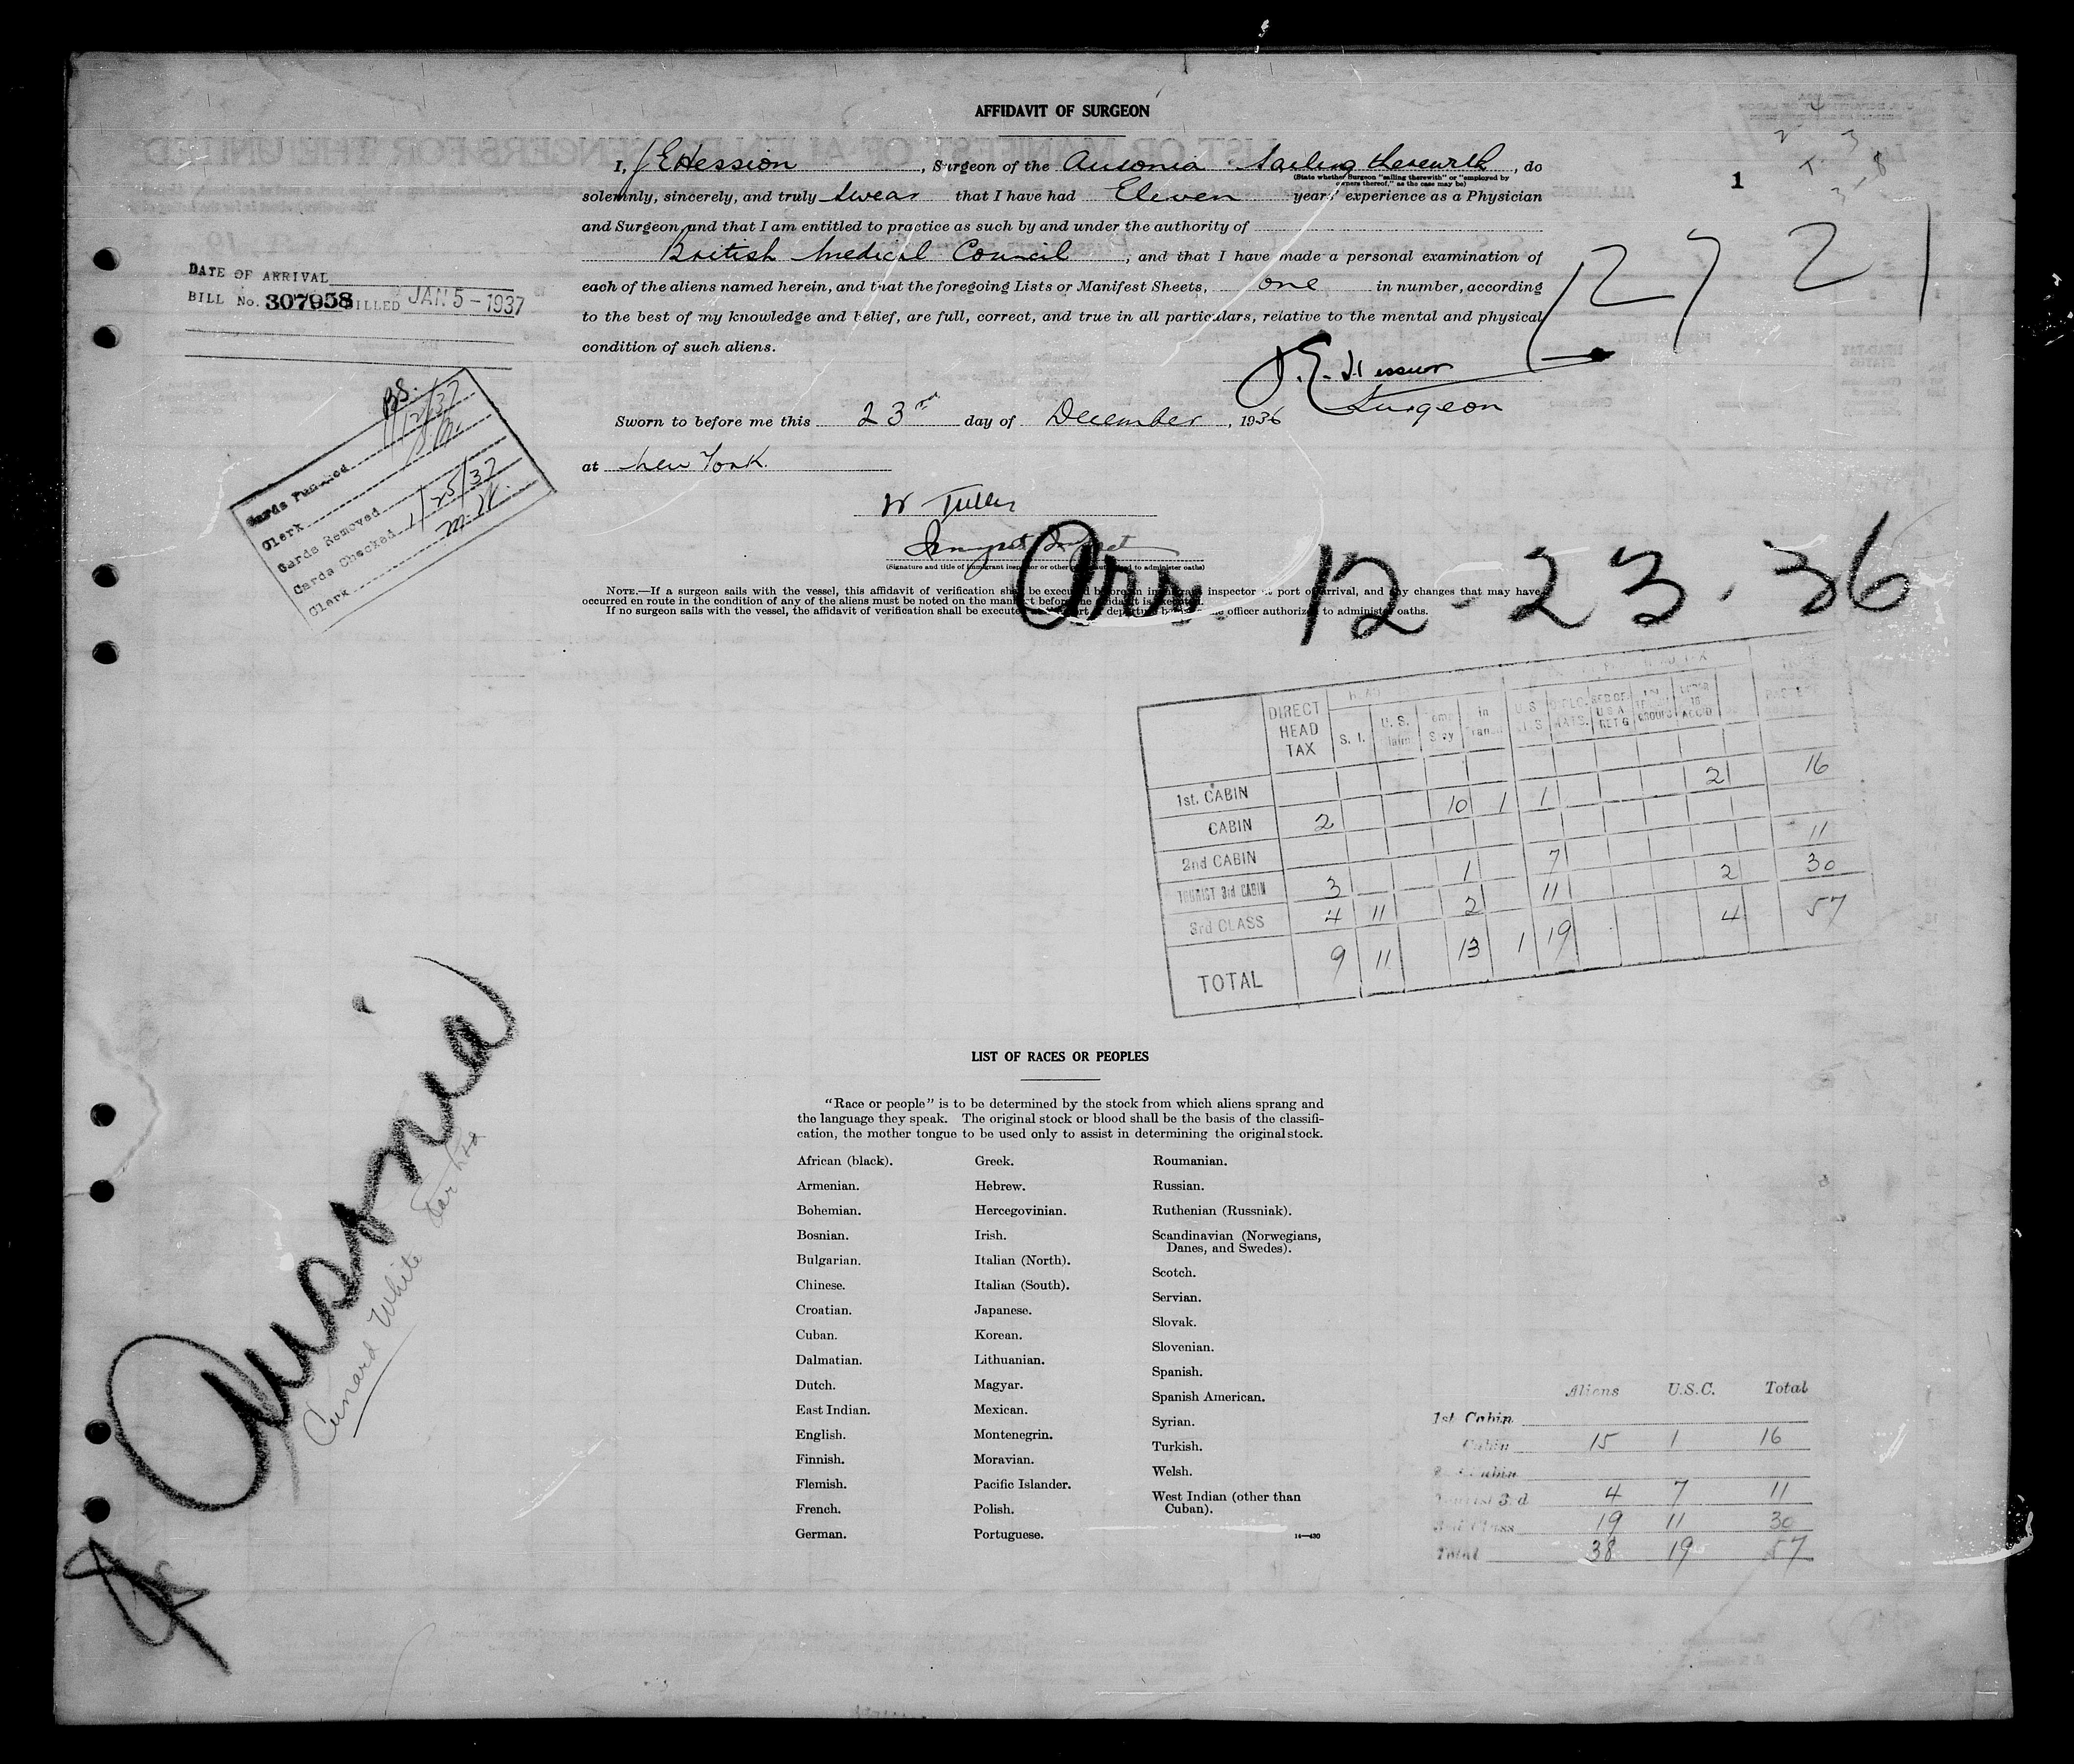 AFFIDAVIT OF SURGEON
I, J E Hession, Surgeon of the Ausonia Sailing therewith, do
(State whether Surgeon "sailing therewith" or "employed by
owners thereof," as the case may be)
solemnly, sincerely, and truly swear that I have had Eleven years' experience as a Physician
and Surgeon, and that I am entitled to practice as such by and under the authority of
British Medical Council, and that I have made a personal examination of
each of the aliens named herein, and that the foregoing Lists or Manifest Sheets, one in number, according
to the best of my knowledge and belief, are full, correct, and true in all particulars, relative to the mental and physical
condition of such aliens.
1
J. E. Hession
Surgeon
Sworn to before me this 23rd day of December, 1936
at New York.
(Signature and title of immigrant inspector or other officer authorized to administer oaths)
NOTE.—If a surgeon sails with the vessel, this affidavit of verification shall be executed before an immigrant inspector at port of arrival, and any changes that may have
occurred en route in the condition of any of the aliens must be noted on the manifest before the affidavit is executed.
If no surgeon sails with the vessel, the affidavit of verification shall be executed at port of departure before officer authorized to administer oaths.
Arr. 12-23-36
DATE OF ARRIVAL
BILL No. 307958 BILLED JAN 5-1937
BS.
Cards Punched 1/12/37
Clerk
Cards Removed
Cards Checked 1/25/37
Clerk
DIRECT HEAD TAX S. I. U. S.
1st. CABIN
CABIN 2 10 1 1 2 16
2nd CABIN
TOURIST 3rd CABIN 3 1 7 11
3rd CLASS 4 11 2 11 2 30
TOTAL 9 11 13 1 19 4 57
Ausonia
Cunard White Star Ltd
LIST OF RACES OR PEOPLES
"Race or people" is to be determined by the stock from which aliens sprang and
the language they speak. The original stock or blood shall be the basis of the classifi-
cation, the mother tongue to be used only to assist in determining the original stock.
African (black).
Armenian.
Bohemian.
Bosnian.
Bulgarian.
Chinese.
Croatian.
Cuban.
Dalmatian.
Dutch.
East Indian.
English.
Finnish.
Flemish.
French.
German.
Greek.
Hebrew.
Hercegovinian.
Irish.
Italian (North).
Italian (South).
Japanese.
Korean.
Lithuanian.
Magyar.
Mexican.
Montenegrin.
Moravian.
Pacific Islander.
Polish.
Portuguese.
Roumanian.
Russian.
Ruthenian (Russniak).
Scandinavian (Norwegians,
Danes, and Swedes).
Scotch.
Servian.
Slovak.
Slovenian.
Spanish.
Spanish American.
Syrian.
Turkish.
Welsh.
West Indian (other than
Cuban).
14—430
Aliens U.S.C. Total
1st Cabin
Cabin 15 1 16
Cabin
Tourist 3rd 4 7 11
3rd Class 19 11 30
Total 38 19 57